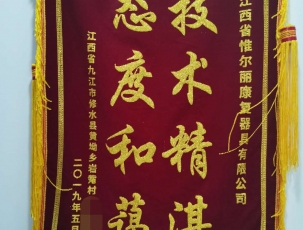 江西省惟尔丽康复器具有限公司
技术精湛
态度和蔼
江西省九江市修水县黄坳乡岩嵩村
二〇一九年五月